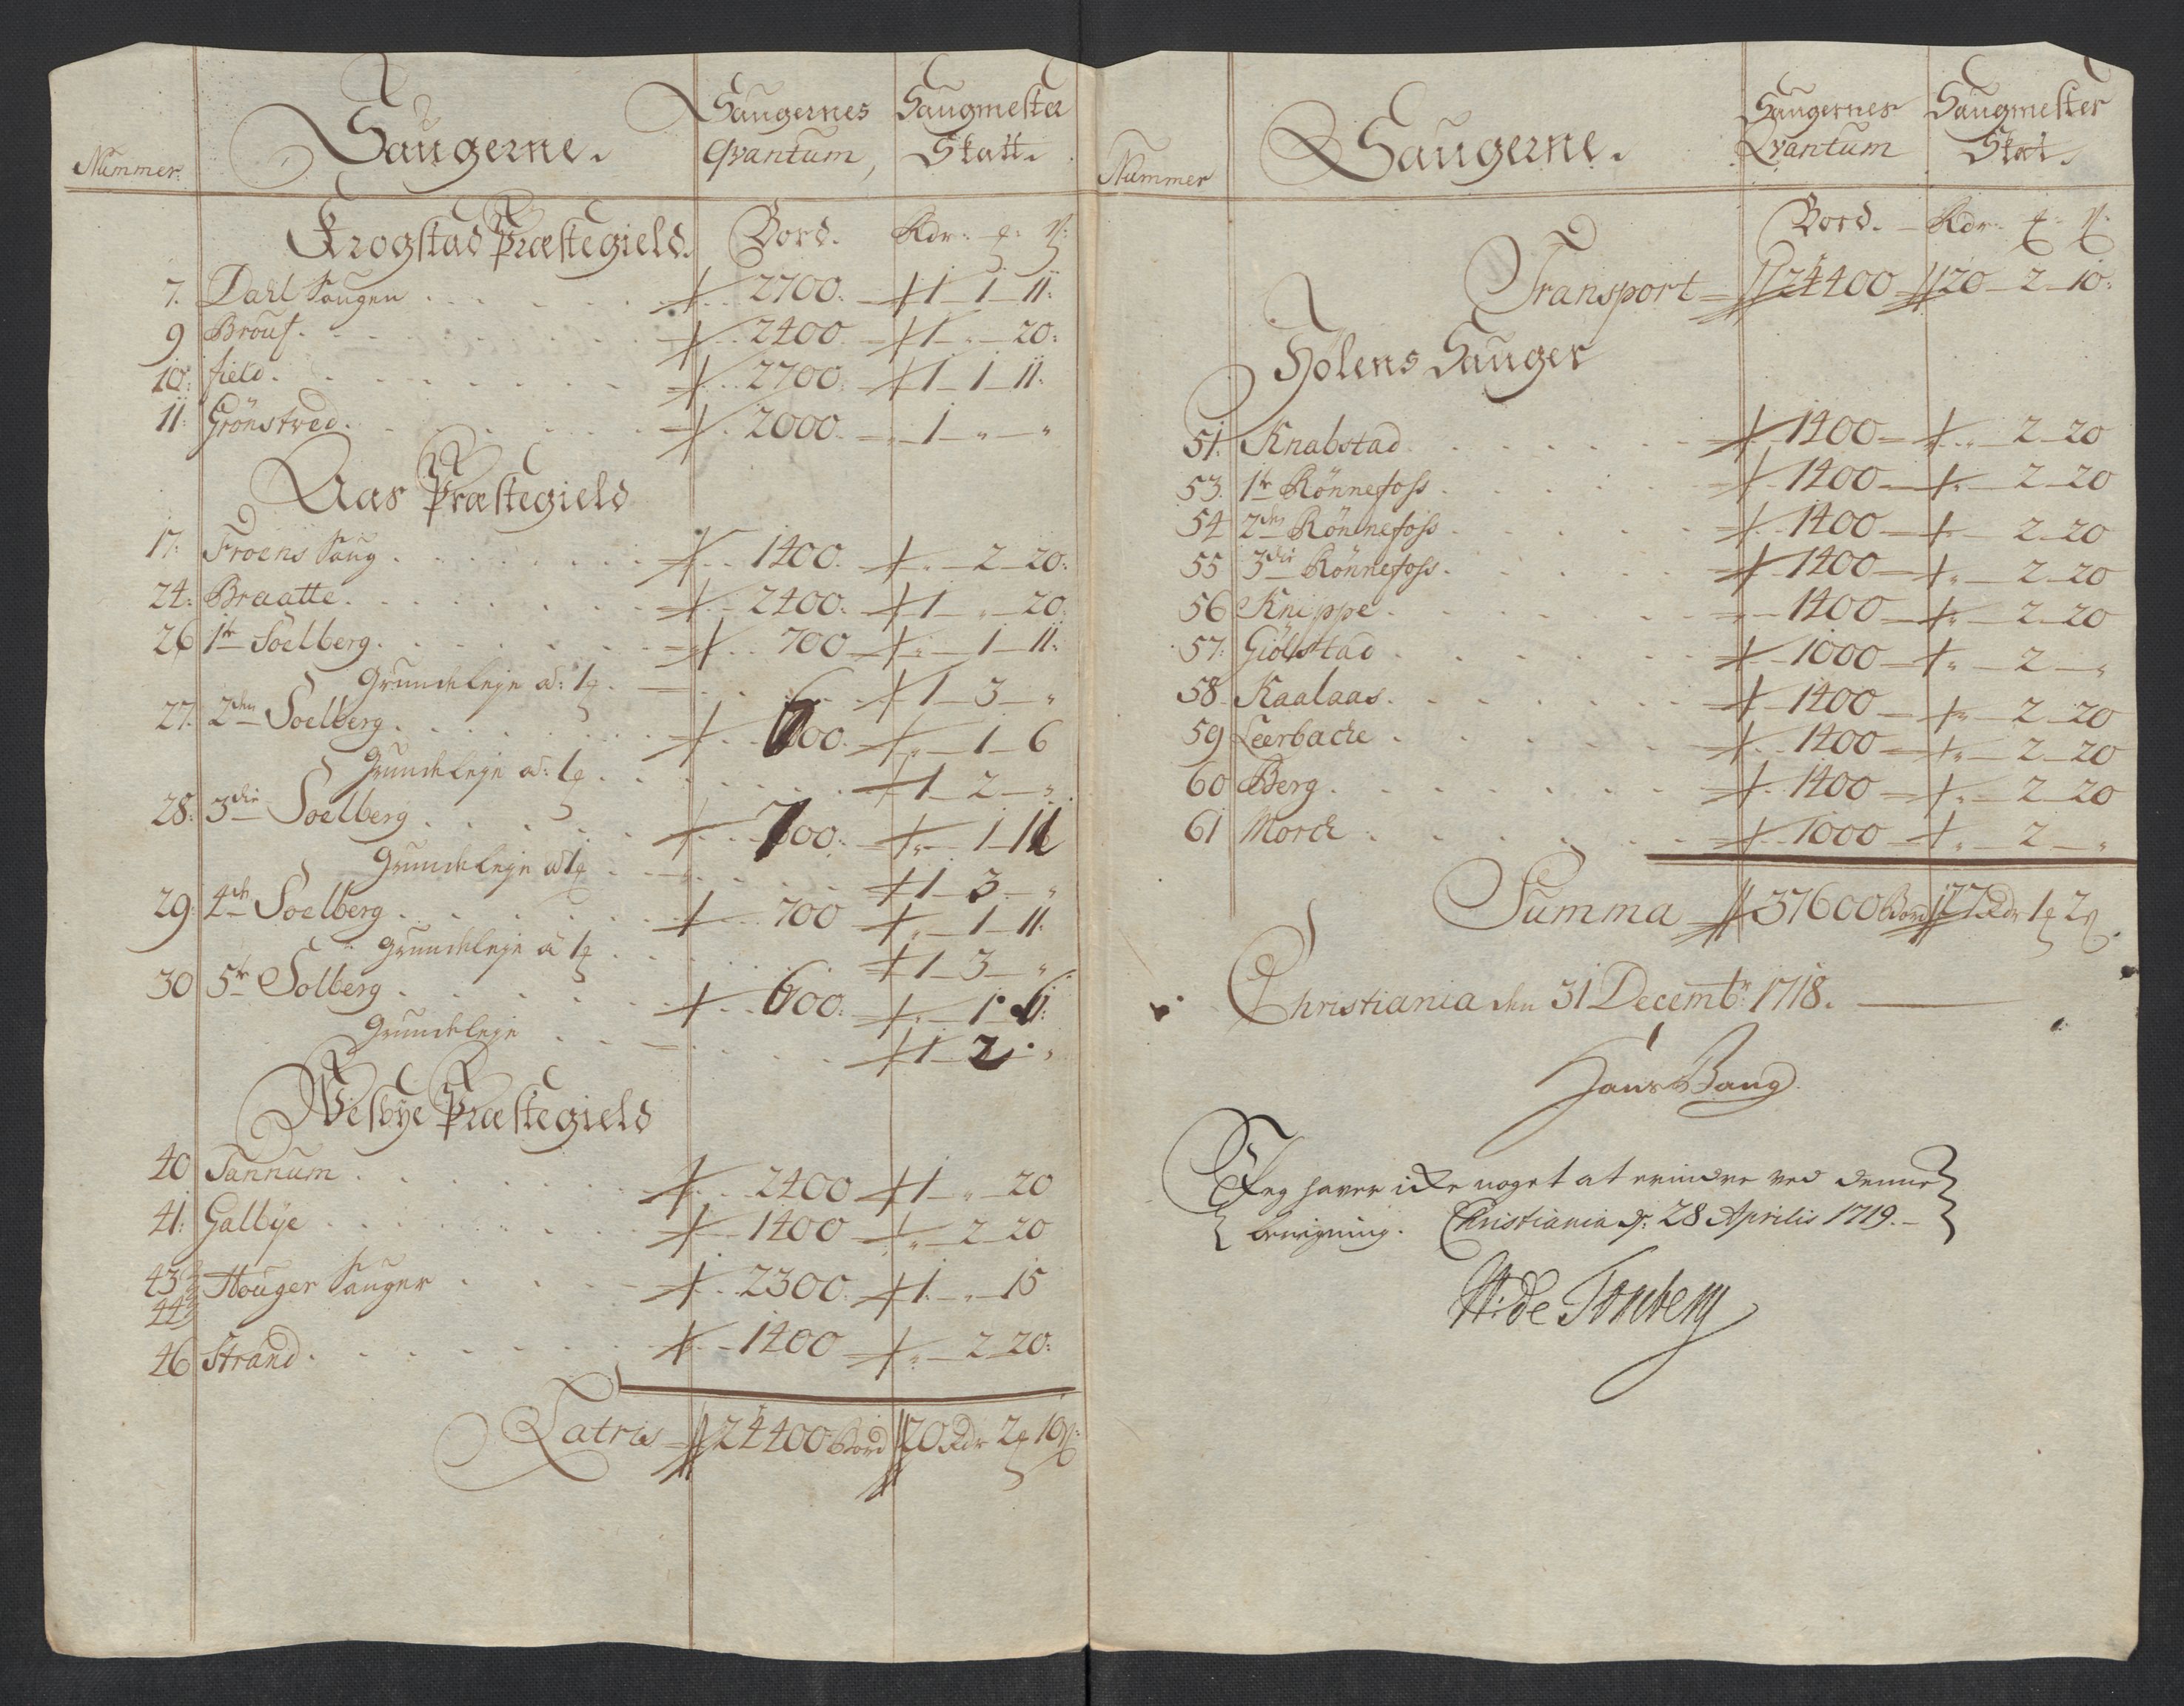 Nummer. Saugerne. Saugernes Qvantum, Saugmester Skatt.
Krogstad Præstegield. Bord. Rdr:
7. Dahl Saugen 2700. 1 1 11:
9 Brous. 2400. 1 " 20:
10: field. 2700. 1 1 11:
11: Grönstved. 2000. 1 " "
Aas Præstegield
17: Froens Saug 1400. " 2 20:
24: Braatte. 2400. 1 " 20:
26 1te Soelberg. 700 " 1 11:
Grundeleje a: 1 1 3 "
27. 2den Soelberg. 600. " 1 6
Grundeleje a: 1 1 2 "
28: 3die Soelberg 700: " 1 11
Grundeleje a 1 1 3 "
29: 4de Soelberg 700 " 1 11:
Grundeleje a 1 1 3 "
30 5te Solberg 600: " 1 6
Grundeleje 1 2 "
Wesbye Præstegield
40 Sannum 2400 1 " 20
41: Galbye 1400 " 2 20
43 44 Houger Sauger 2300. 1. " 15
46 Strand. 1400 " 2 20:
Latris 24400 Bord 20 Rdr 2 10
Nummer Saugerne. Saugernes Qvantum Saugmester Skat.
Bord. Rdr:
Transport 24400 20 2 10:
Holens Sauger
51. Knabstad 1400 " 2 20
53. 1te Rönnefoss 1400 " 2 20
54 2den Rönnefoss 1400 " 2 20
55 3die Rönnefoss. 1400 " 2 20
56 Knippe 1400 " 2 20
57: Giölstad 1000 " 2 "
58 Kaalaas. 1400 " 2 20
59 Leerbache 1400 " 2 20
60 Berg 1400 " 2 20
61 Morch 1000 " 2 "
Summa 37600 Bord 27 Rdr 1 2
Christiania den 31 Decembr: 1718.
Hans Bang.
Jeg haver icke noget at erindre ved denne
beregning. Christiania d: 28 Aprilis 1719.
H: de Tonberg